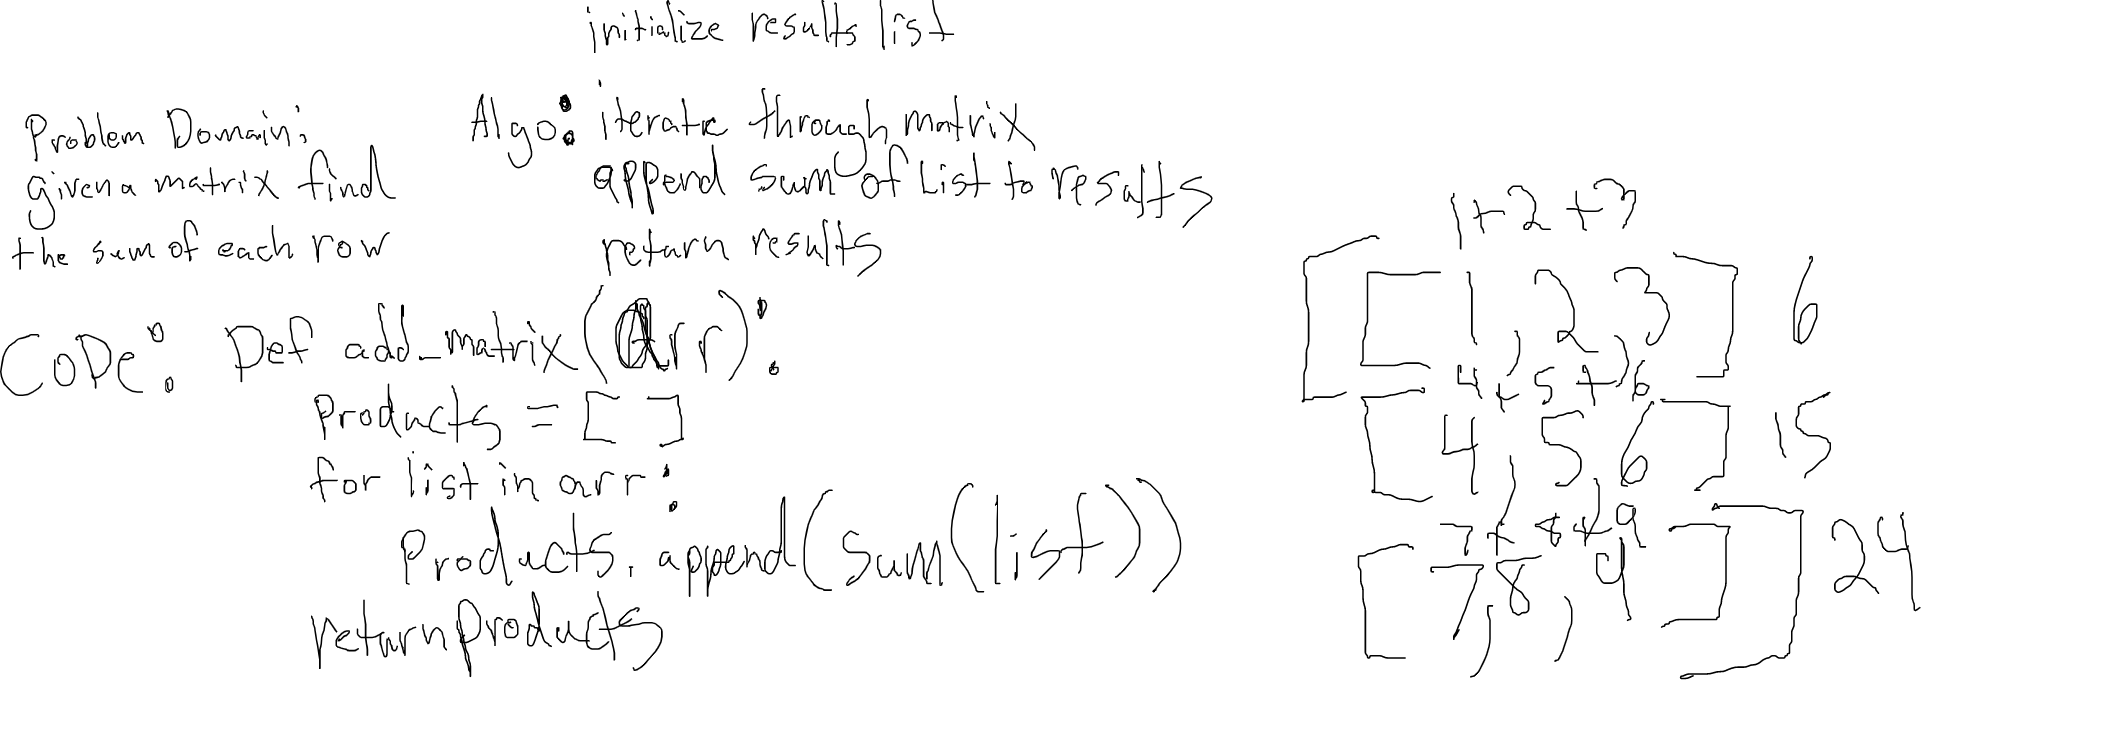 Problem Domain:
given a matrix find
the sum of each row
initialize results list
Algo: iterate through matrix
append sum of List to results
return results
CODe: Def add_matrix(Arr):
Products = [ ]
for list in arr:
Products.append(sum(list))
return products
1+2+3
[[1, 2, 3] 6
4+5+6
[4, 5, 6] 15
7+8+9
[7, 8, 9]] 24